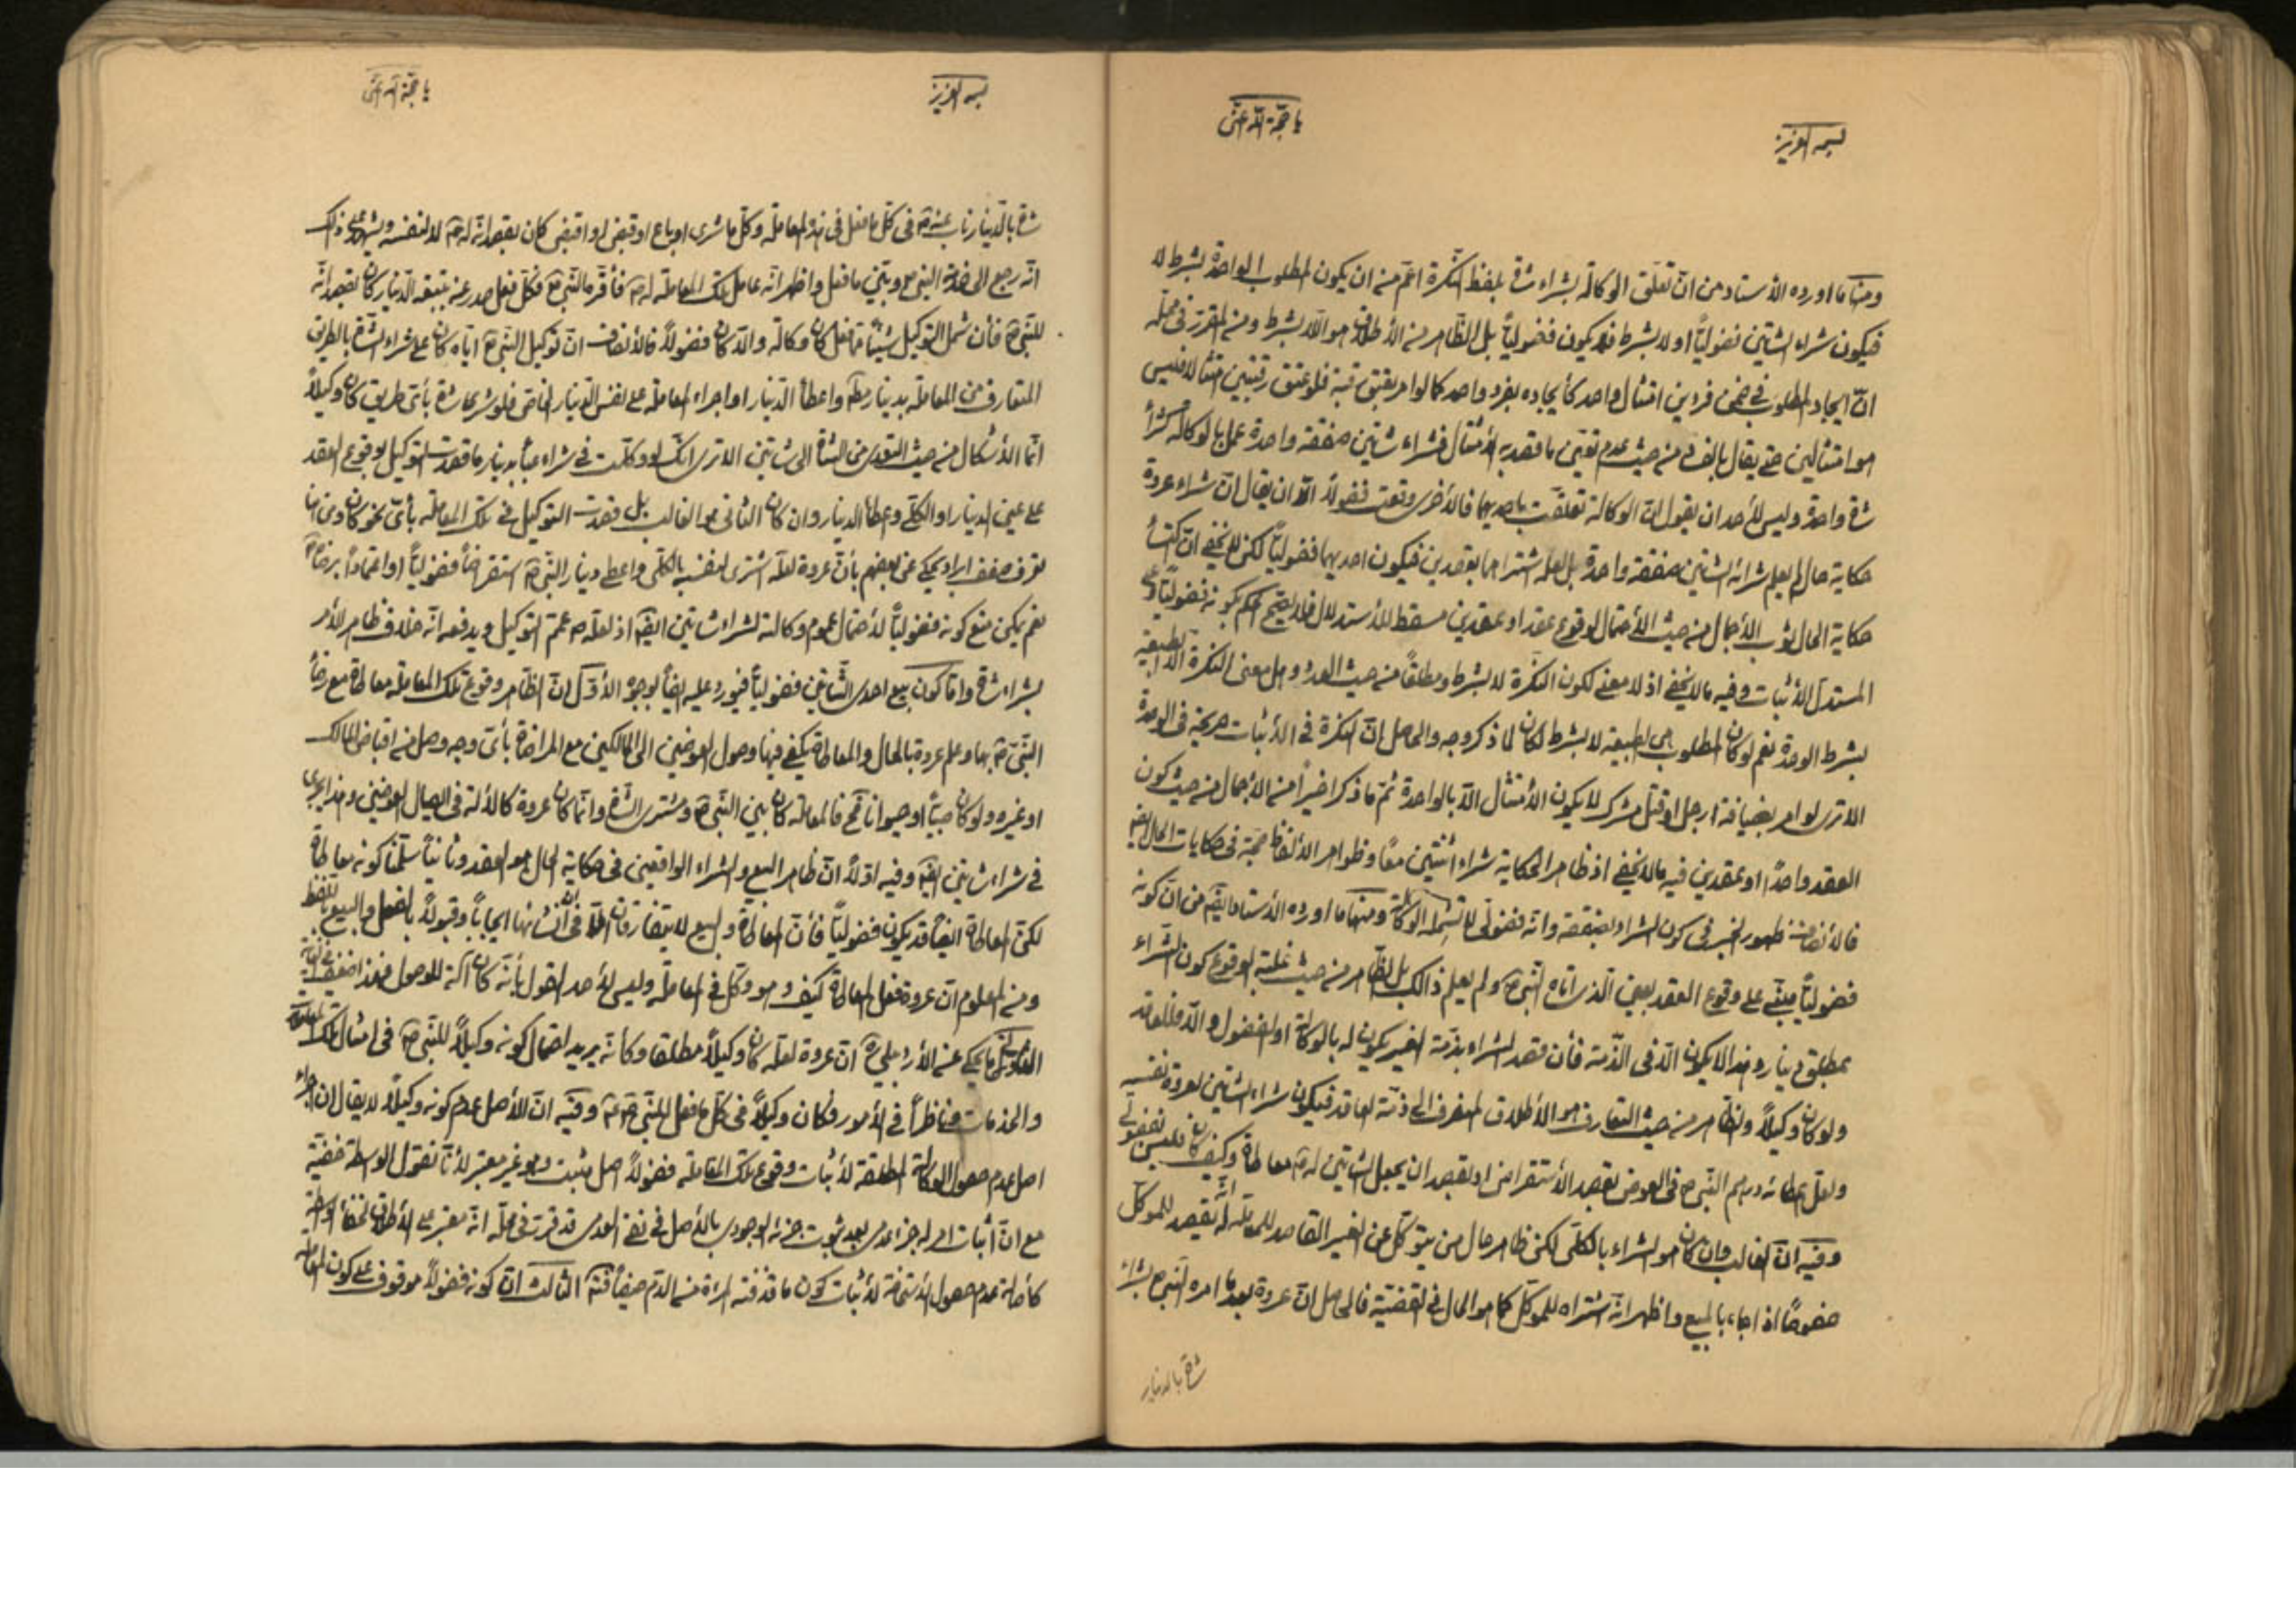 بسمه العزيز
يا حجة الله اغثنى
ومنها ما اورده الأستاد من انّ تعلّق الوكالة بشراء شاة بلفظ النّكرة اعمّ من ان يكون المطلوب الواحدة بشرط لا
فيكون شراء الشاتين فضوليّاً او لا بشرط فلا يكون فضوليّاً بل الظّاهر من الأطلاق هو اللّا بشرط ومن المقرّر في محلّه
انّ ايجاد المطلوب في ضمن فردين امتثال واحد كأيجاده بفرد واحد كما لو امر بعتق رقبة فلو عتق رقبتين امتثالا فليس
هو امتثالين حتى يقال بالفساد من حيث عدم تعيّن ما قصد به الأمتثال فشراء شاتين صفقة واحدة عمل بالوكالة كشراء
شاة واحدة وليس لأحد ان يقول انّ الوكالة تعلّقت باحديهما فالأخرى وقعت فضولاً الّا ان يقال انّ شراء عروة
حكاية حال لم يعلم شرائه الشاتين صفقة واحدة بل لعلّه اشتراهما بعقدين فيكون احديهما فضوليّاً لكن لا يخفى انّ
حكاية الحال ثوب الأجمال من حيث الأحتمال لوقوع عقد او عقدين مسقط للأستدلال فلا يصحّ الحكم بكونه فضوليّاً
المستدل الأثبات وفيه ما لا يخفى اذ لا معنى لكون النكرة لا بشرط ومطلقاً من حيث العدد وهل معنى النكرة الّا الطبيعة
بشرط الوحدة نعم لو كان المطلوب هى الطبيعة لا بشرط لكان لما ذكر وجه والحاصل انّ النكرة في الأثبات صريحة في الوحدة
الا ترى لو امر بضيافة رجل او قتل مشرك لا يكون الأمتثال الّا بالواحدة ثمّ ما ذكر اخيراً من الأجمال من حيث كون
العقد واحداً او عقدين فيه ما لا يخفى اذ ظاهر الحكاية شراء اثنتين معاً وظواهر الألفاظ حجة في حكايات الحال ايضاً
فالأنصاف ظهور الخبر في كون الشراء بصفقة وانّه فضولىّ لا تشمله الوكالة ومنها ما اورده الأستاد ايضاً من انّ كونه
فضوليّاً مبنىّ على وقوع العقد بعين الّذى اتاه النّبى ص ولم يعلم ذالك بل الظّاهر من حيث غلبة الوقوع كون الشّراء
بمطلق دينار وهذا لا يكون الّا في الذّمة فأن قصد الشراء بذمّة الغير يكون له بالوكالة او الفضول والّا فللعاقد
ولو كان وكيلاً والظّاهر من حيث التعارف هو الأطلاق المنصرف الى ذمّة العاقد فيكون شراء الشاتين لعروة نفسه
ولعلّ اعطائه درهم النّبى ص في العوض بقصد الأستقراض او بقصد ان يجعل الشاتين له ص معاطاة وكيف كان فليس بفضولى
وفيه انّ الغالب وان كان هو الشراء بالكلّى لكن ظاهر حال من يتوكّل عن الغير القاصد للمعاملة له انّه يقصد للموكّل
خصوصاً اذا جاء بالمبيع واظهر انّه اشتراه للموكّل كما هو الحال في القضيّة فالحاصل انّ عروة بعد ما امره النبى ص بشراء
شاة بالدينار
بسمه العزيز
يا حجة الله اغثنى
شاة بالدّينار ناب عنه ص في كلّ ما فعل في هذه المعاملة وكلّ ما شرى او باع او قبض او اقبض كان بقصد انّه له ص لا لنفسه ويشهد على ذلك
انّه رجع الى خدمة النبى ص وبيّن ما فعل واظهر انّه عامل تلك المعاملة له ص فأقرّه النّبى ص فكلّ فعل صدر عنه بتبعة الدّينار كان بقصد انّه
للنّبى ص فأن شمل التوكيل شيئاً ممّا فعل كان وكالة والّا كان فضولاً فالأنصاف انّ توكيل النّبى ص ايّاه كان على شراء الشّاة بالطريق
المتعارف من المعاملة بدينار مطلق واعطاء الدّينار او اجراء المعاملة على نفس الدّينار الخاص فلو شرى شاة بأىّ طريق كان وكيلاً
انّما الأشكال من حيث التعدى من الشاة الى شاتين الا ترى انّك لو وكّلت في شراء عباء بدينار ما قصدت التوكيل بوقوع العقد
على عين الدينار او الكلّى واعطاء الدينار وان كان الثانى هو الغالب بل قصدت التوكيل في تلك المعاملة بأىّ نحو كان ومن هنا
تعرف ضعف ايراد يحكى عن بعضهم بأنّ عروة لعلّه اشترى لنفسه بالكلّى واعطى دينار النّبى ص استقراضاً فضوليّاً او اعتماداً برضاه ص
نعم يمكن منع كونه فضوليّاً لأحتمال عموم وكالته لشراء شاتين ايضاً اذ لعلّه ص عمّم التوكيل ويدفعه انّه خلاف ظاهر الأمر
بشراء شاة وامّا كون بيع احدى الشّاتين فضوليّاً فيورد عليه ايضاً بوجوه الأوّل انّ الظّاهر وقوع تلك المعاملة معاطاة مع رضاء
النّبى ص بها وعلم عروة بالحال والمعاطاة يكفى فيها وصول العوضين الى المالكين مع المراضاة بأىّ وجه وصل من اقباض المالك
او غيره ولو كان صبيّاً او حيواناً فالمعاملة كان بين النّبى ص ومشترى الشّاة وانّما كان عروة كالألة في ايصال العوضين وهذا يجرى
في شراء شاتين ايضاً وفيه اوّلاً انّ ظاهر البيع والشراء الواقعين في حكاية الحال هو العقد وثانياً سلّمنا كونه معاطاة
لكن المعاطاة ايضاً قد يكون فضوليّاً فأنّ المعاطاة والبيع لا يتفارقان الّا في انشائها ايجاباً وقبولاً بالفعل والبيع باللفظ
ومن المعلوم انّ عروة فعل المعاطاة كيف وهو وكيل في المعاملة وليس لأحد القول بأنّه كان آلة للوصول فهذا اضعف
الثانى ما يحكى عن الأردبيلى ره انّ عروة لعلّه كان وكيلاً مطلقا وكأنّه يريد احتمال كونه وكيلاً للنّبى ص في امثال تلك المعاملة
والخدمات وناظراً في الأمور فكان وكيلاً في كلّ ما فعل للنّبى ص وفيه انّ الأصل عدم كونه وكيلاً لا يقال ان اجراء
اصل عدم حصول الوكالة المطلقة لأثبات وقوع تلك المعاملة فضولاً اصل مثبت وهو غير معتبر لأنّا نقول الواسطة خفيّة
مع انّ اثبات امر له جزء عدمى بعد ثبوت جزئه الوجودى بالأصل في نفى العدمى قد قرّرت في محلّه انّه معتبر على الأطلاق لخفاء الواسطة
كأصالة عدم حصول الأستحاضة لأثبات كون ما قذفته المرأة من الدّم حيضاً الثالث انّ كونه فضولاً موقوف على كون المعاملة